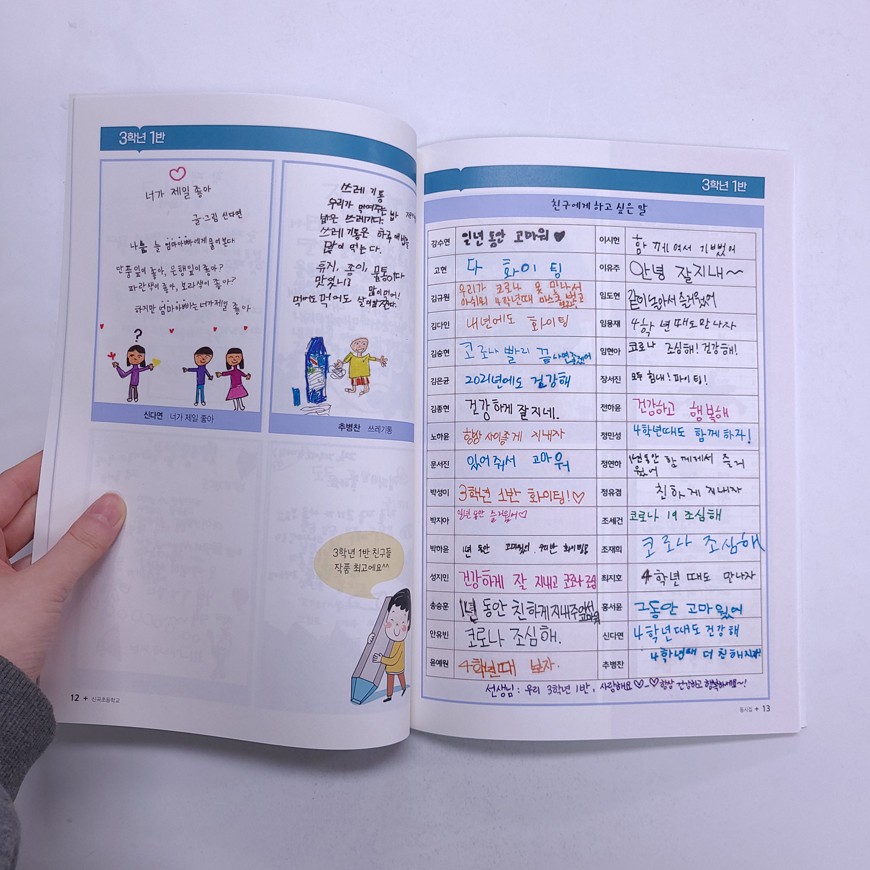 3학년 1반
너가 제일 좋아
글·그림 신다연
나를 늘 엄마아빠에게 물어본다
단풍잎이 좋아, 은행잎이 좋아?
파란색이 좋아, 보라색이 좋아?
하지만 엄마아빠는 너가 제일 좋아
?
신다면 너가 제일 좋아
쓰레기통
우리가 먹여주는 밥
쓰레기다.
쓰레기통은 하루에
많이 먹는다.
휴지, 종이, 물통이다
맛있니
많이 먹어!
먹어도 먹어도 살이
추병찬 쓰레기통
3학년 1반 친구들
작품 최고에요^^
12 + 신곡초등학교
3학년 1반
친구에게 하고 싶은 말
강수연 일년 동안 고마워 ♥
이시헌 함께여서 기뻤어
고현 다 화이팅
이유주 안녕 잘지내~
김규원 우리가 코로나 못 만나서
아쉬워 4학년때
임도현 같이 놀아서 즐거웠어
김다인 내년에도 화이팅
임용재 4학년때도 만나자
김승현 코로나 빨리 끝나면 좋겠어
임현아 코로나 조심해! 건강해!
김은윤 2021년에도 건강해
장서진 모두 힘내! 파이팅!
김종현 건강하게 잘지네.
전하윤 건강하고 행복해
노하윤 항상 사이좋게 지내자
정민성 4학년때도 함께 하자!
문서진 있어줘서 고마워
정연하 1년동안 함께해서 즐거
웠어
박성이 3학년 1반 화이팅!♡
정유겸 친하게 지내자
박지아 일년 동안 즐거웠어♡
조세건 코로나 19 조심해
박하윤 1년 동안 고마웠어 화이팅
조재희 코로나 조심해
성지민 건강하게 잘 지내고 코로나 조심
최지호 4학년때도 만나자
송승훈 1년 동안 친하게지내주어서
고마워
홍서윤 그동안 고마웠어
안유빈 코로나 조심해.
신다면 4학년때도 건강해
윤예원 4학년때 보자.
추병찬 4학년때 더 친해지자!
선생님 : 우리 3학년 1반, 사랑해요♡-♡ 항상 건강하고 행복하세요~!
동시집 + 13